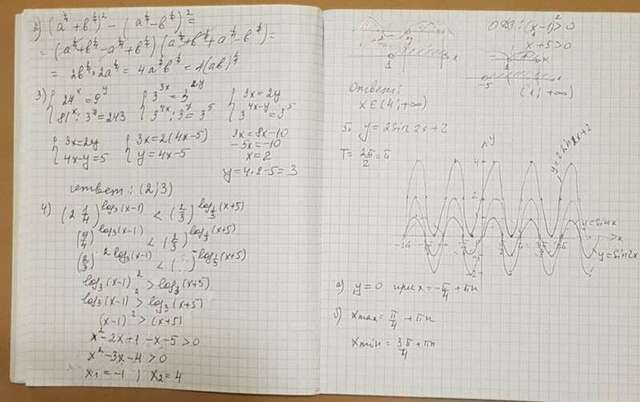 2) (a^¼ + b^¼)² - (a^¼ - b^¼)² =
= (a^¼ + b^¼ - a^¼ + b^¼)(a^¼ + b^¼ + a^¼ - b^¼) =
= 2b^¼ · 2a^¼ = 4a^¼b^¼ = 4(ab)^¼
3) { 27^x = 9^y { 3^3x = 3^2y { 3x = 2y
{ 81^x : 3^y = 243 { 3^4x : 3^y = 3^5 { 3^4x-y = 3^5
{ 3x = 2y { 3x = 2(4x-5) 3x = 8x - 10
{ 4x - y = 5 { y = 4x - 5 -5x = -10
x = 2
y = 4·2 - 5 = 3
ответ: (2; 3)
4) (2 ¼)^log₃(x-1) < (2/3)^log_⅓(x+5)
(9/4)^log₃(x-1) < (2/3)^log_⅓(x+5)
log₃(x-1)² > log₃(x+5)
log₃(x-1)² > log₃(x+5)
(x-1)² > (x+5)
x² - 2x + 1 - x - 5 > 0
x² - 3x - 4 > 0
x₁ = -1 ; x₂ = 4
ОДЗ:
x + 5 > 0
-5
(1; +∞)
Ответ:
x ∈ (4; +∞)
5. y = 2 sin 2x + 2
T = 2π/2 = π
y
4
y = 2 sin 2x + 2
y = sin x
x
y = sin 2x
а) y = 0 при x = -π/4 + πn
б) x max = π/4 + πn
x min = 3π/4 + πn